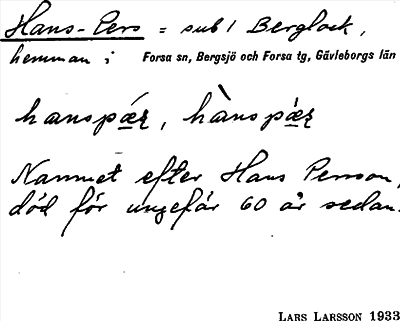 Hans-Pers = sub 1 Berglock,
hemman i Forsa sn, Bergsjö och Forsa tg, Gävleborgs län
hanspǽʀ, hànspæ̀ʀ
Namnet efter Hans Person,
död för ungefär 60 år sedan.
LARS LARSSON 1933